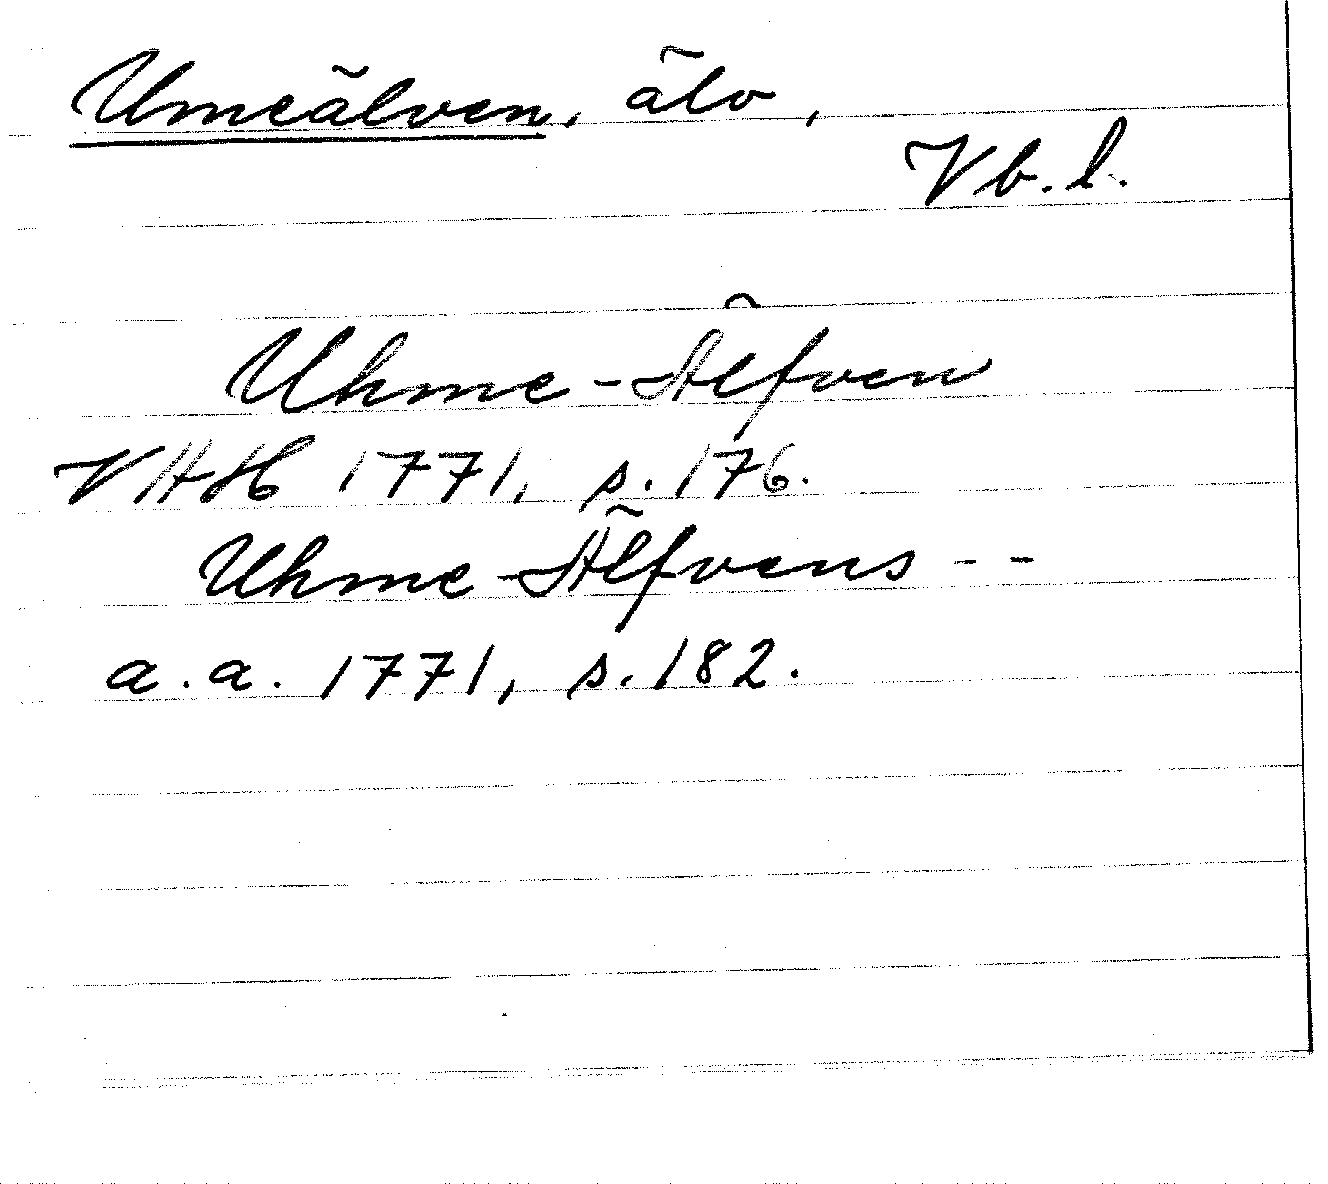 Umeälven, älv,
Vb. l.
Uhme-Älfven
VHH 1771, s. 176.
Uhme-Älfvens - -
a. a. 1771, s. 182.